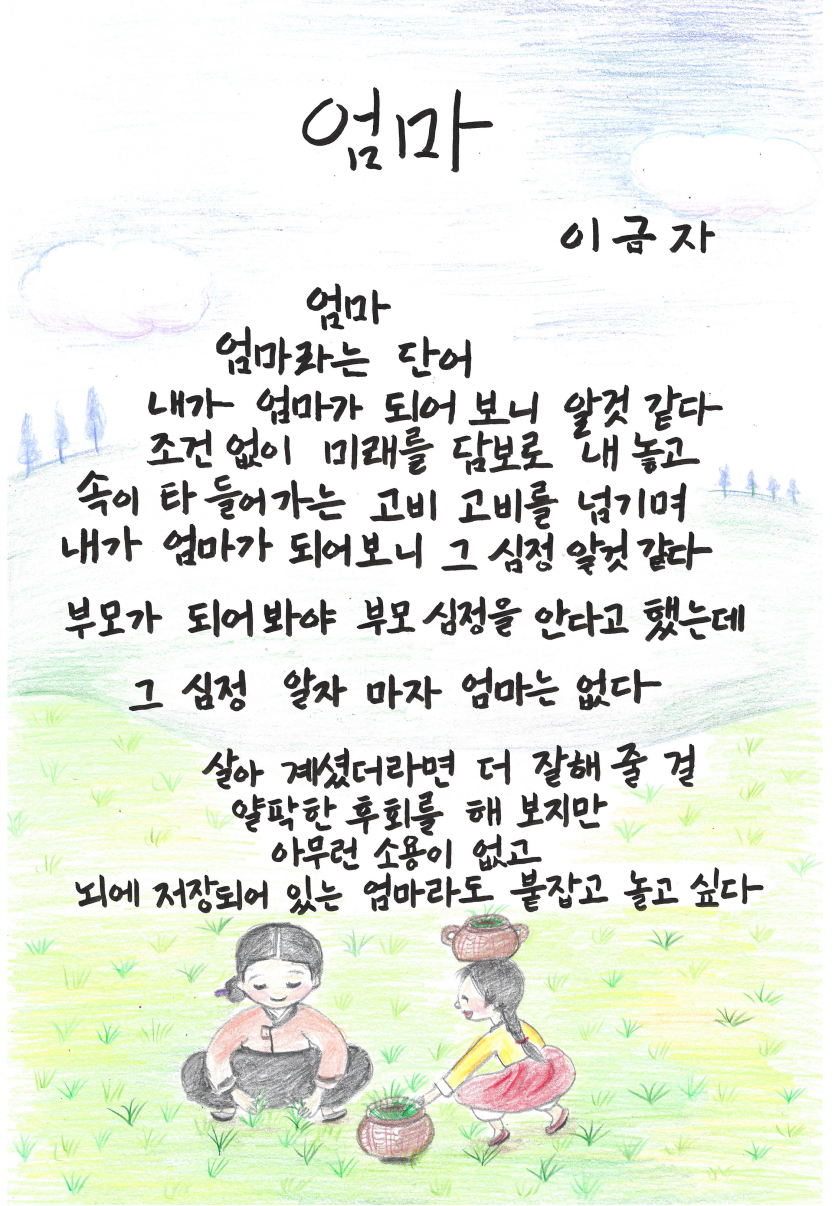 엄마
이금자
엄마
엄마라는 단어
내가 엄마가 되어 보니 알것 같다
조건 없이 미래를 담보로 내 놓고
속이 타 들어가는 고비 고비를 넘기며
내가 엄마가 되어보니 그 심정 알것 같다
부모가 되어봐야 부모 심정을 안다고 했는데
그 심정 알자 마자 엄마는 없다
살아 계셨더라면 더 잘해 줄 걸
얄팍한 후회를 해 보지만
아무런 소용이 없고
뇌에 저장되어 있는 엄마라도 붙잡고 놀고 싶다